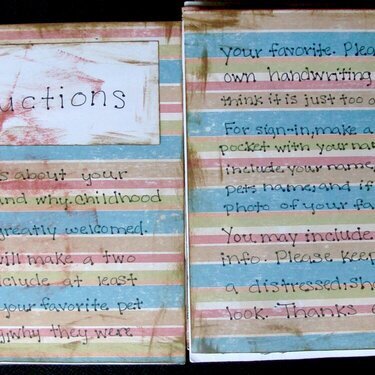 uctions
s about your
and why. childhood
greatly welcomed.
will make a two
clude at least
your favorite pet
, why they were
your favorite. Plea
own handwriting
think it is just too
For sign-in, make a
pocket with your nam
include, your name,
pets name; and if
photo of your fa
You may include
info. Please keep
a distressed, sh
look. Thanks